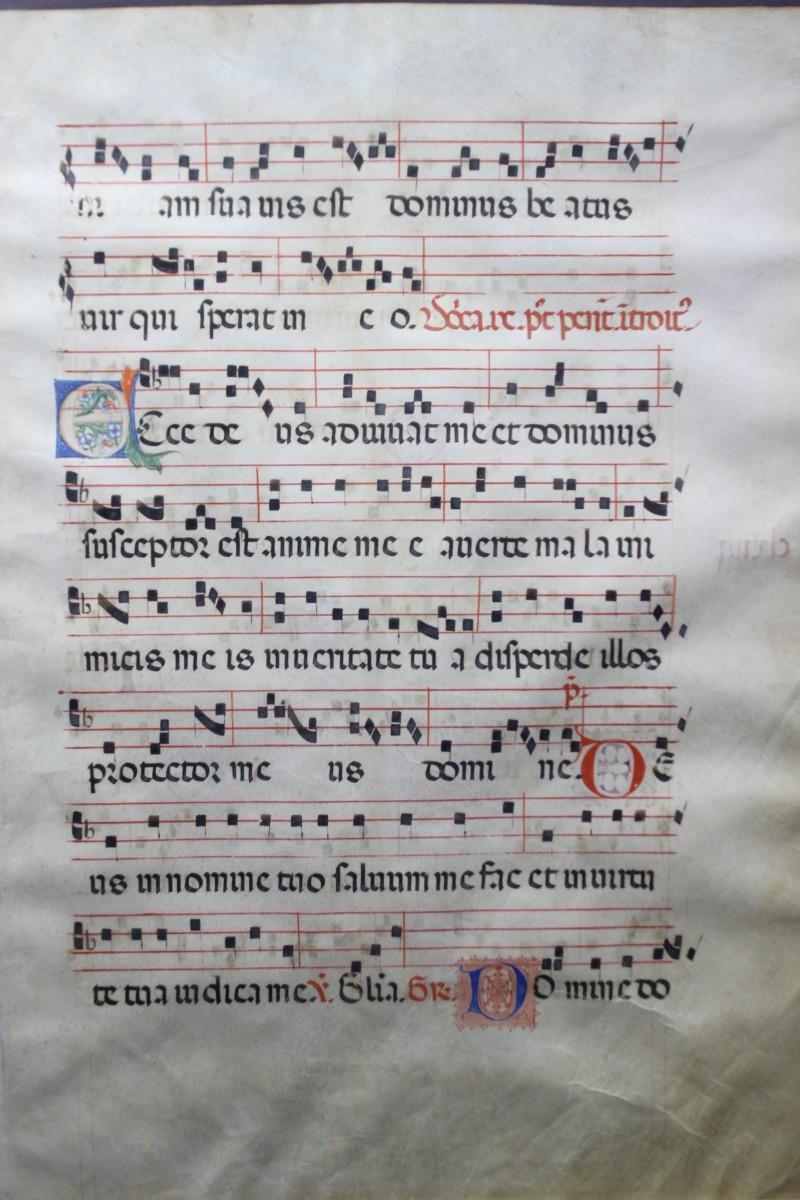 am sua uis est dominus be atus
uir qui sperat in e o. Dñica .ix. pꝰt pent̄. introit᷒
Ecce de us adiuuat me et dominus
susceptor est anime me e auerte ma la ini
micis me is in ueritate tu a disperde illos
protector me us domi ne. p̄. De
us in nomine tuo saluum me fac et in uirtu
te tua iudica me. V̄. Gl̄ia. Gr̄. Do mine do